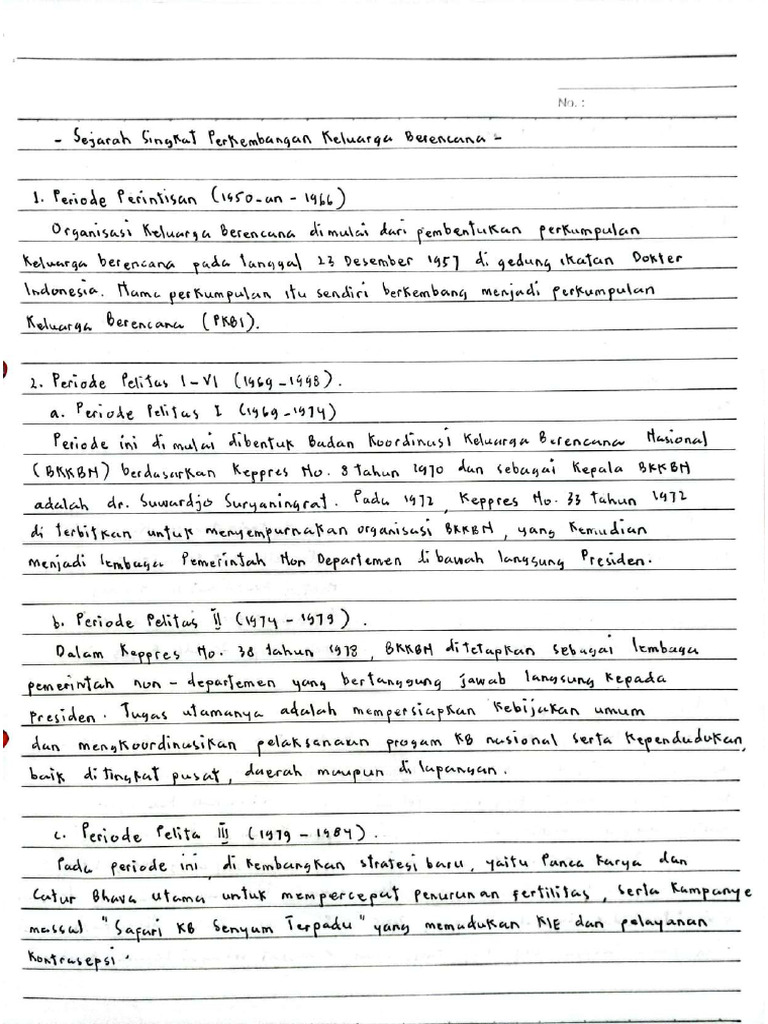 No. :
- Sejarah Singkat Perkembangan Keluarga Berencana -
1. Periode Perintisan (1950-an - 1966)
Organisasi Keluarga Berencana dimulai dari pembentukan perkumpulan
Keluarga berencana pada tanggal 23 Desember 1957 di gedung ikatan Dokter
Indonesia. Nama perkumpulan itu sendiri berkembang menjadi perkumpulan
Keluarga Berencana (PKBI).
2. Periode Pelitas I - VI (1969 - 1998).
a. Periode Pelitas I (1969 - 1974)
Periode ini di mulai dibentuk Badan Koordinasi Keluarga Berencana Nasional
(BKKBN) berdasarkan Keppres No. 8 tahun 1970 dan sebagai Kepala BKKBN
adalah dr. Suwardjo Suryaningrat. Pada 1972, Keppres No. 33 tahun 1972
di terbitkan untuk menyempurnakan organisasi BKKBN, yang Kemudian
menjadi lembaga Pemerintah Non Departemen di bawah langsung Presiden.
b. Periode Pelitas II (1974 - 1979).
Dalam Keppres No. 38 tahun 1978, BKKBN di tetapkan sebagai lembaga
pemerintah non - departemen yang bertanggung jawab langsung kepada
Presiden. Tugas utamanya adalah mempersiapkan Kebijakan umum
dan mengkoordinasikan pelaksanaan progam KB nasional serta Kependudukan,
baik di tingkat pusat, daerah maupun di lapangan.
c. Periode Pelita III (1979 - 1984).
Pada periode ini, di kembangkan strategi baru, yaitu Panca Karya dan
Catur Bhava Utama untuk mempercepat penurunan fertilitas, serta Kampanye
massal "Safari KB Senyum Terpadu" yang memadukan KIE dan pelayanan
Kontrasepsi.